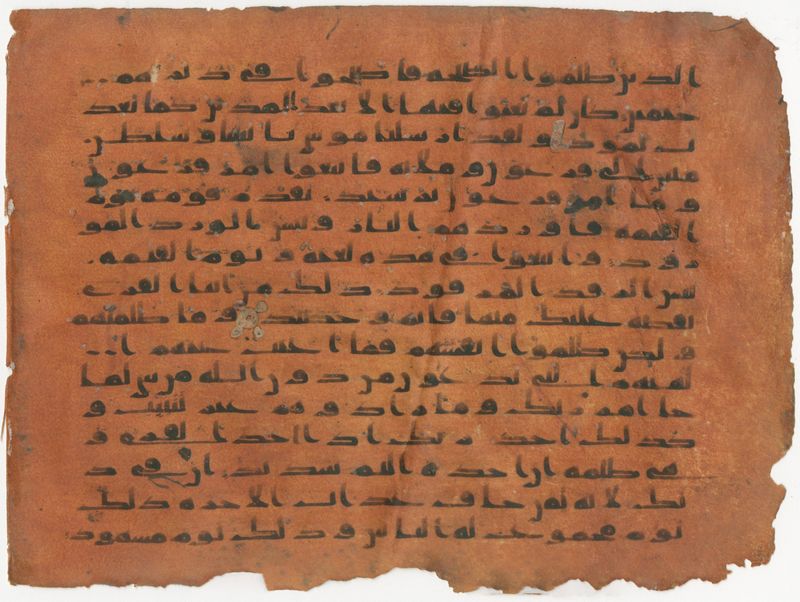 الذين ظلموا الصيحه فاصبحوا في ديرهم
جثمين كان لم يغنوا فيها الا بعدا لمدين كما بعد
ت ثمود و لقد ارسلنا موسى بايتنا و سلطن
مبين الى فرعون و ملايه فاتبعوا امر فرعون
و ما امر فرعون برشيد يقدم قومه يوم
القيمه فاوردهم النار و بيس الورد المو
رود و اتبعوا في هذه لعنه و يوم القيمه
بيس الرفد المرفود ذلك من انبا القرى
نقصه عليك منها قايم و حصيد و ما ظلمنهم
و لكن ظلموا انفسهم فما اغنت عنهم ا
لهتهم التي يدعون من دون الله من شي لما
جا امر ربك و ما زادوهم غير تتبيب و
كذلك اخذ ربك اذا اخذ القرى و
هي ظلمه ان اخذه اليم شديد ان في ذ
لك لايه لمن خاف عذاب الاخره ذلك
يوم مجموع له الناس و ذلك يوم مشهود